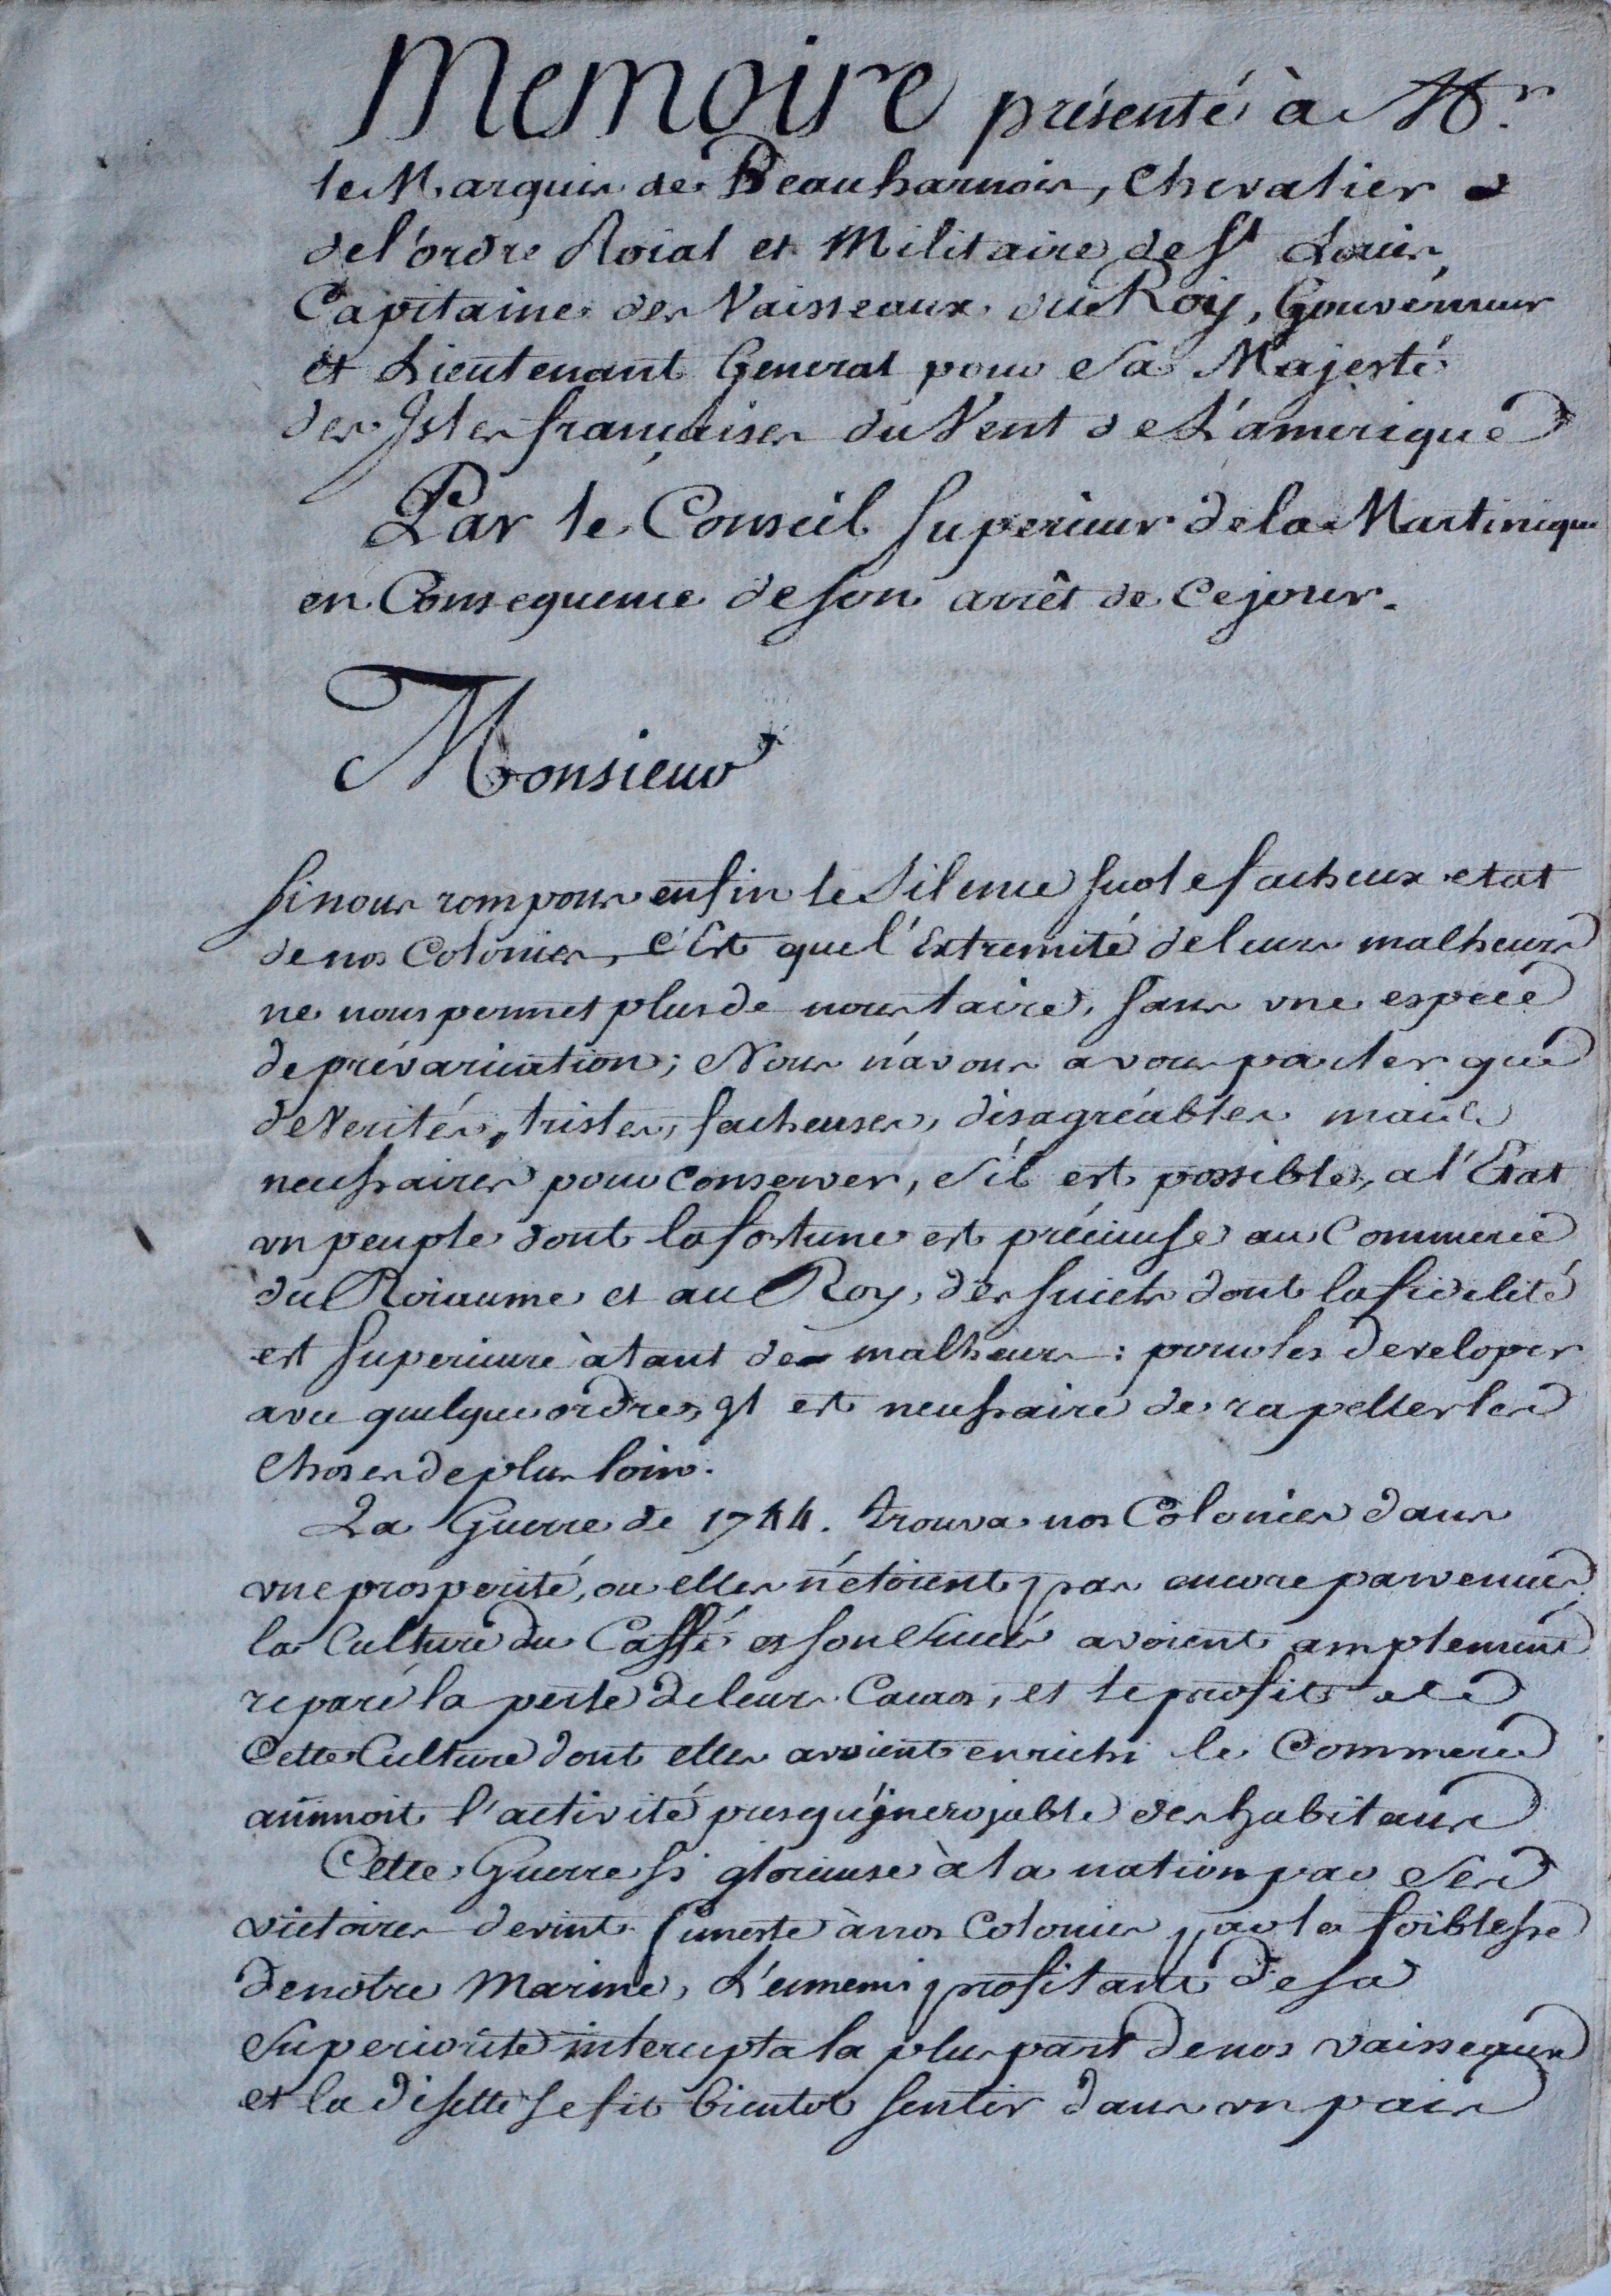 Memoire présenté à Mr.
le Marquis de Beauharnois, Chevalier
de l'ordre Roial et Militaire de St Louis,
Capitaine des Vaisseaux du Roy, Gouverneur
et Lieutenant General pour Sa Majesté
des Isles françaises du Vent de L'amerique
Par le Conseil Superieur de la Martinique
en Consequence de son arrêt de ce jour.
Monsieur
Si nous rompons enfin le Silence sur le facheux etat
de nos Colonies, c'Est que l'Extremité de leurs malheurs
ne nous permet plus de nous taire, sans une espece
de prévarication; Nous n'avons a vous parler que
de Verités, tristes, facheuses, désagréables mais
necessaires pour conserver, s'il est possible, a l'Etat
un peuple dont la fortune est précieuse au Commerce
du Roiaume et au Roy, des suiets dont la fidelité
est superieure à tant de malheurs : pour les developer
avec quelque ordre, Il est necessaire de rapeller les
choses de plus loin.
La Guerre de 1744. trouva nos Colonies dans
une prosperité, ou elles n'étoient pas encore parvenues,
la Culture du Caffé et son Succés avoient amplement
reparé la perte de leurs Cacaos, et le profit de
Cette Culture dont elles avoient enrichi le Commerce
animoit l'activité presqu'jncrojable des habitans
Cette Guerre si glorieuse à la nation par Ses
victoires devint funeste à nos Colonies par la foiblesse
de notre Marine, L'ennemi profitant de sa
Superiorité intercepta la plus part de nos vaisseaux
et la disette se fit bientot sentir dans un pais